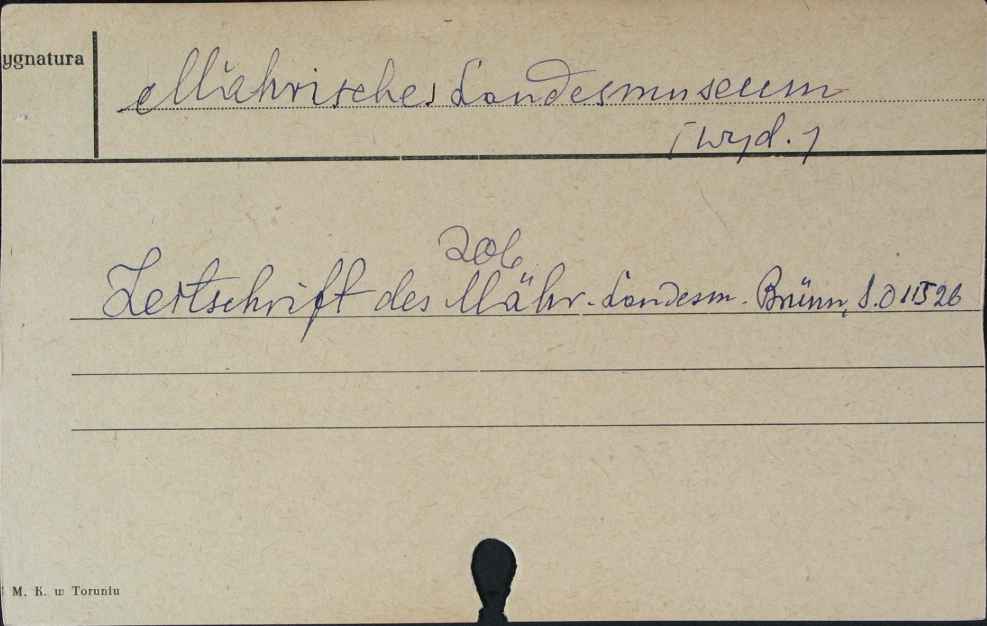 ygnatura
Mährisches Landesmuseum
[wyd.]
zob.
Zeitschrift des Mähr. Landesm. Brünn, S.O 11526
M. K. w Toruniu